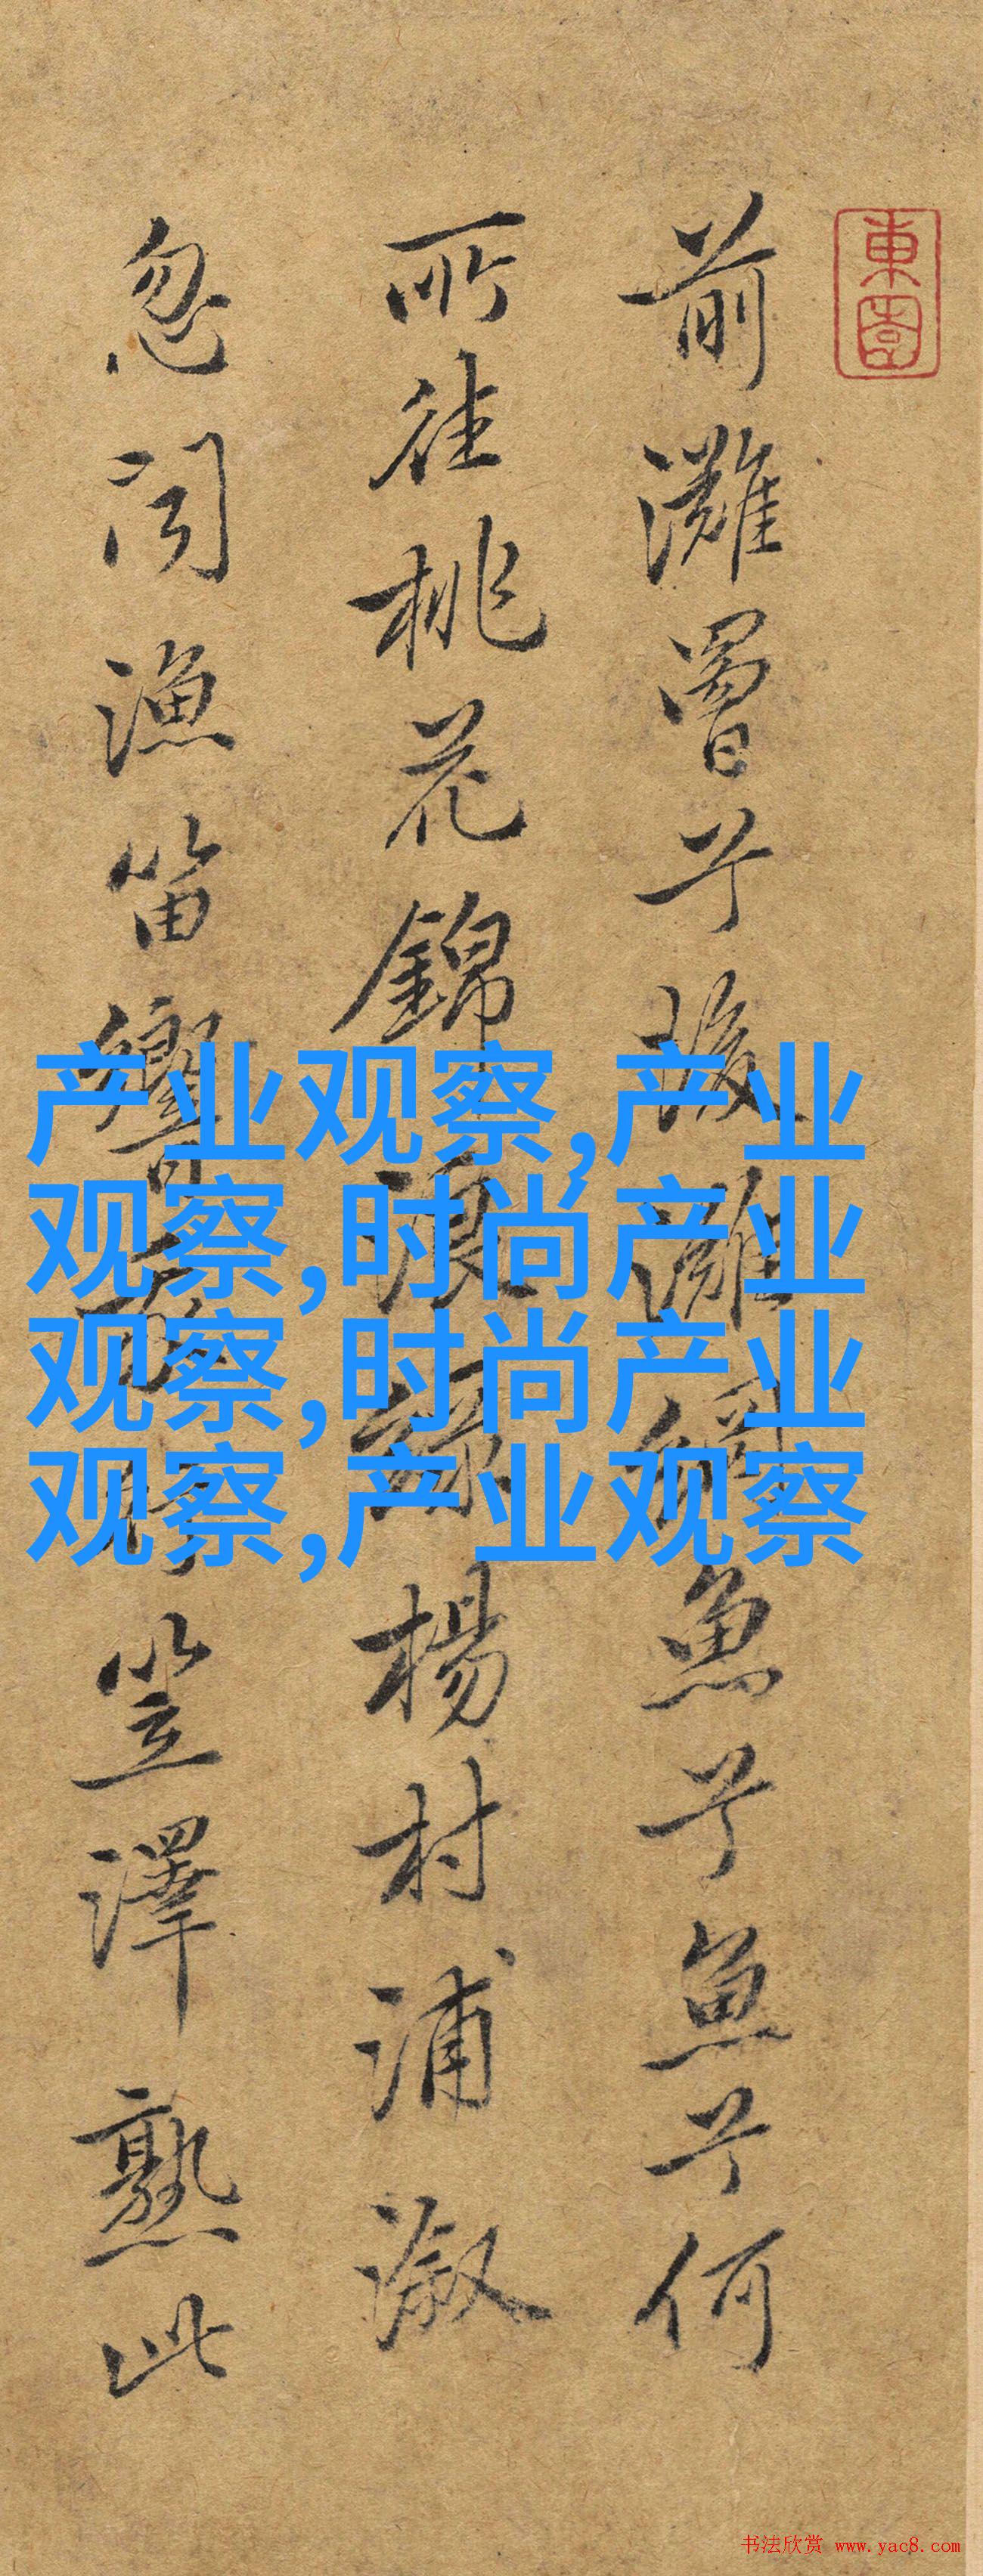 東園
前灘罾兮後灘網魚兮魚兮何
所往桃花錦浪綠楊村浦溆
忽聞漁笛響笠澤熟此
产业观察,产业
观察,时尚产业
观察,时尚产业
观察,产业观察
书法欣赏 www.yac8.com